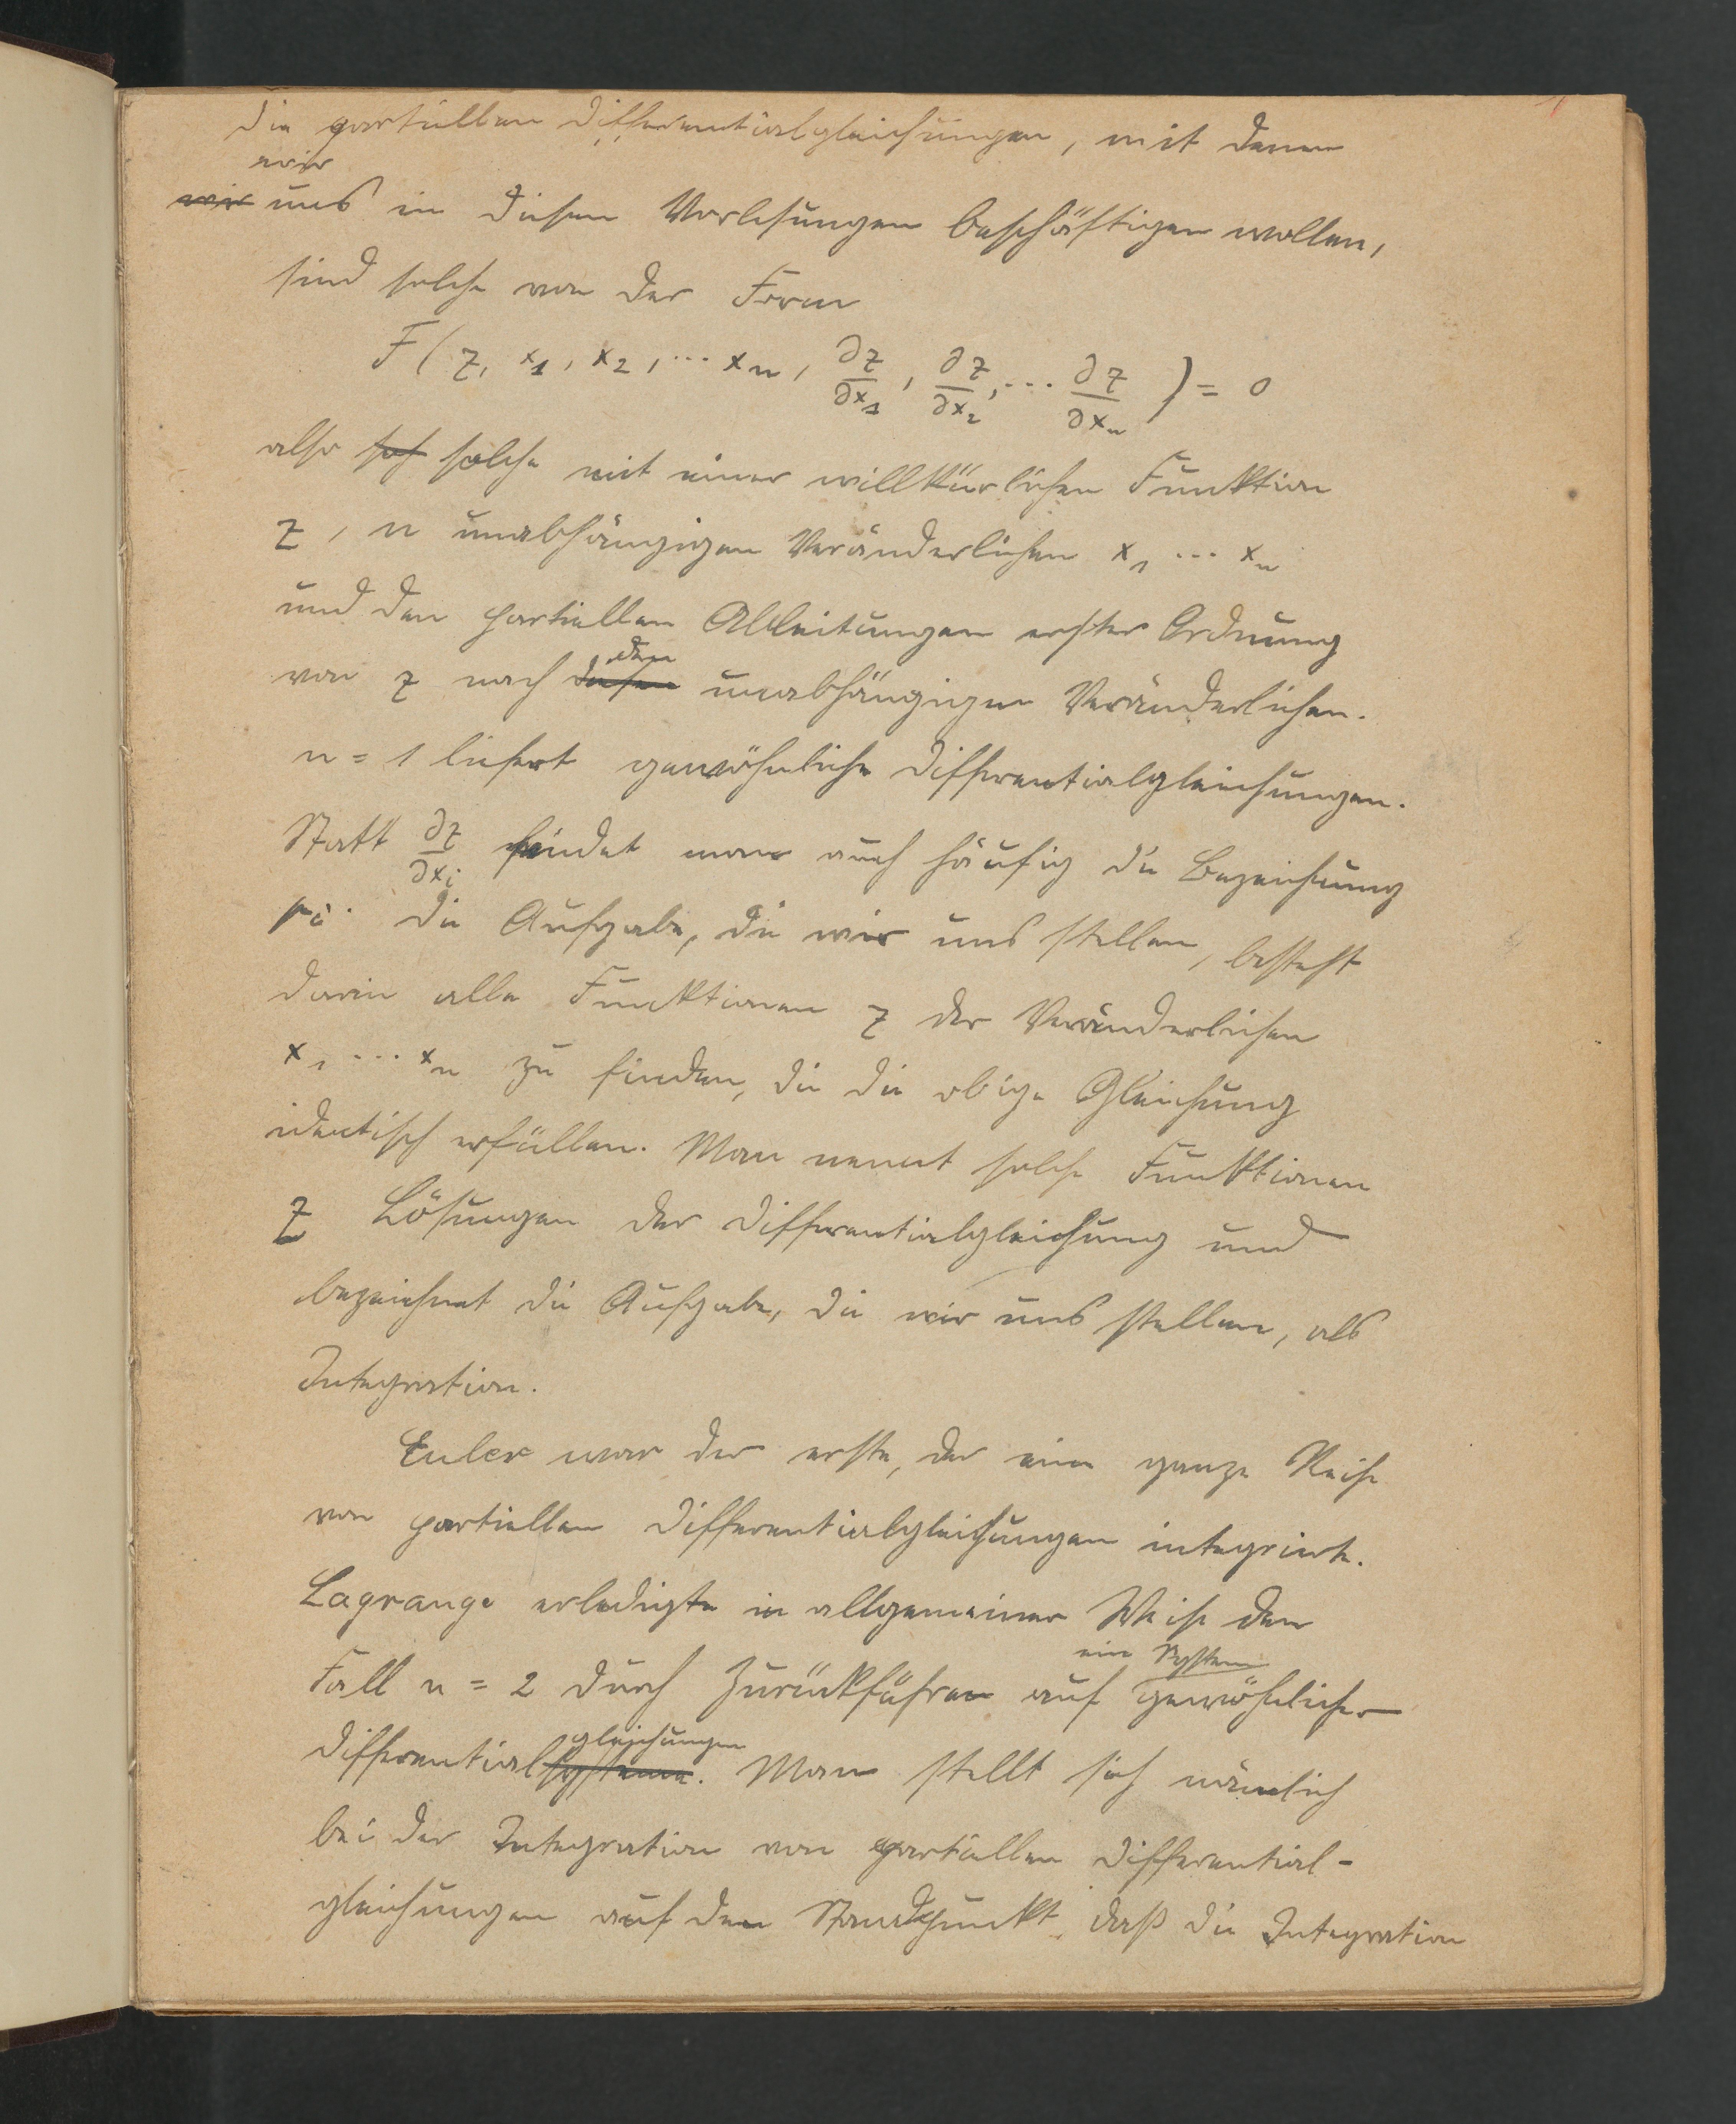 Die partiellen Differentialgleichungen, mit denen
wir
wir uns in diesen Vorlesungen beschäftigen wollen,
sind solche von der Form
F(z, x₁, x₂, ... xₙ, ∂z/∂x₁, ∂z/∂x₂, ... ∂z/∂xₙ) = 0
also sol solche mit einer willkürlichen Funktion
z, n unabhängigen Veränderlichen x₁ ... xₙ
und den partiellen Ableitungen erster Ordnung
den
von z nach diesen unabhängigen Veränderlichen.
n = 1 liefert gewöhnliche Differentialgleichungen.
Statt ∂z/∂xᵢ findet man auch häufig die Bezeichnung
pᵢ. Die Aufgabe, die wir uns stellen, besteht
darin alle Funktionen z der Veränderlichen
x₁ ... xₙ zu finden, die die obige Gleichung
identisch erfüllen. Man nennt solche Funktionen
z Lösungen der Differentialgleichung und
bezeichnet die Aufgabe, die wir uns stellen, als
Integration.
Euler war der erste, der eine ganze Reihe
von partiellen Differentialgleichungen integrierte.
Lagrange erledigte in allgemeiner Weise den
ein System
Fall n = 2 durch Zurückführen auf gewöhnlicher
gleichungen
Differentialsysteme. Man stellt sich nämlich
bei der Integration von partiellen Differential-
gleichungen auf den Standpunkt, daß die Integration